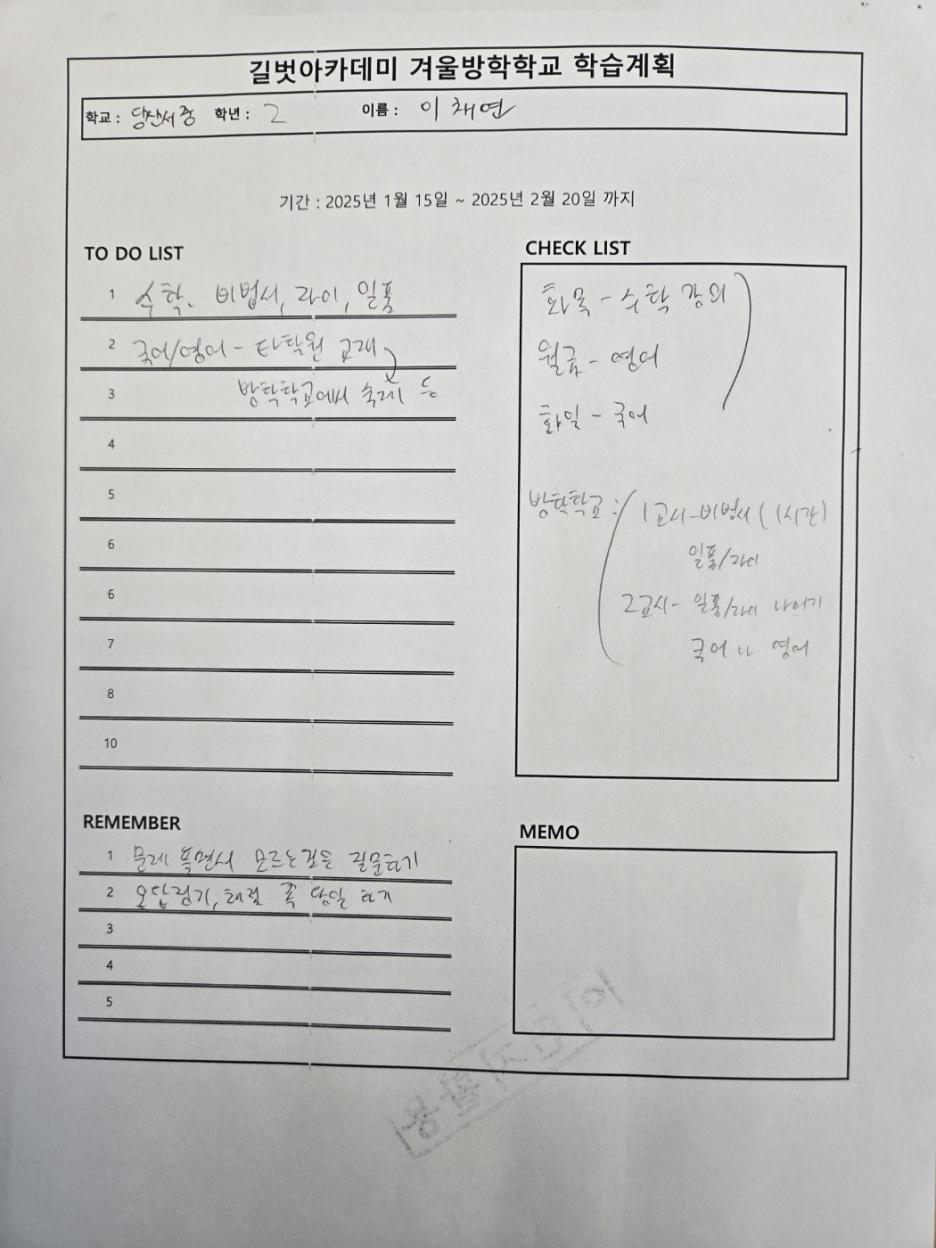 길벗아카데미 겨울방학학교 학습계획
학교 : 당산서중 학년 : 2 이름 : 이채연
기간 : 2025년 1월 15일 ~ 2025년 2월 20일 까지
TO DO LIST
1 수학. 비법서, 라이, 일품
2 국어/영어 - 타학원 교재
3 방학학교에서 숙제 등
4
5
6
6
7
8
10
CHECK LIST
화목 - 수학 강의
월금 - 영어
화일 - 국어
방학학교 : 1교시 - 비법서 (1시간)
일품/라이
2교시 - 일품/라이 나머지
국어 나 영어
REMEMBER
1 문제 풀면서 모르는것은 질문하기
2 오답정기, 채점 꼭 당일 하기
3
4
5
MEMO